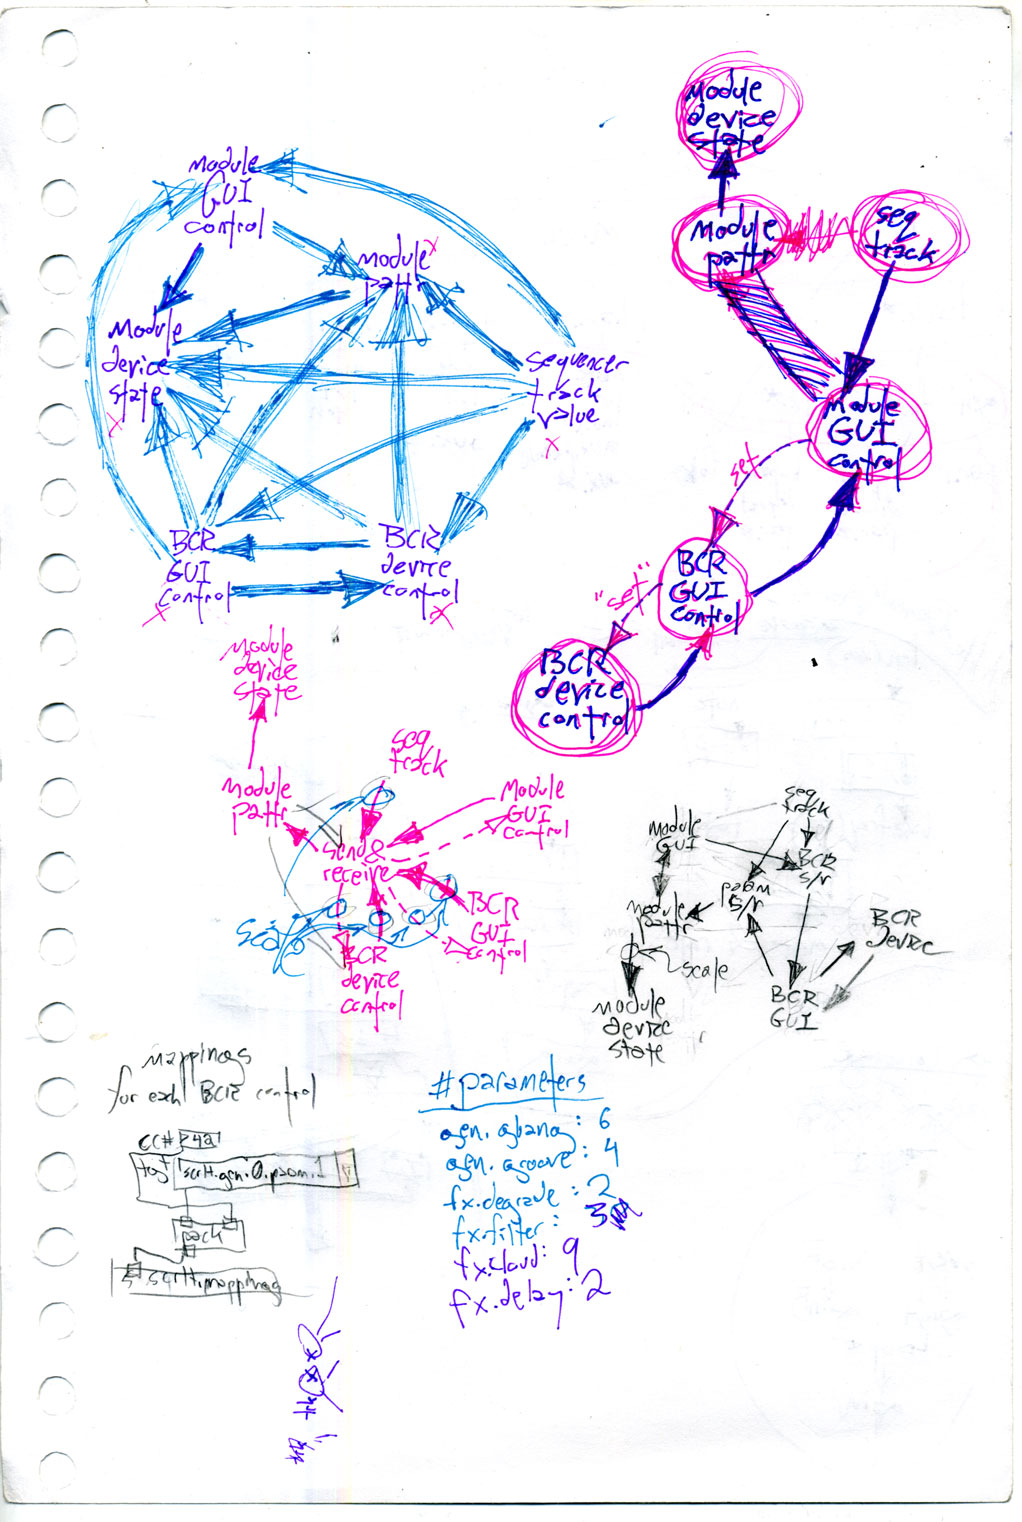 Module
GUI
control
module
pattr
Module
device
state
sequencer
track
value
BCR
GUI
control
BCR
device
control
Module
device
state
Module
pattr
seq
track
Module
GUI
control
set
BCR
GUI
control
"set"
BCR
device
control
Module
device
state
seq
track
Module
pattr
Module
GUI
control
send &
receive
BCR
GUI
control
BCR
device
control
seq
track
Module
GUI
BCR
S/r
param
S/r
module
pattr
BCR
Device
scale
BCR
GUI
Module
device
state
mappings
for each BCR control
CC#
pack
# parameters
: 6
: 4
fx.degrade : 2
fx.filter : 3
fx.cloud: 9
fx.delay: 2